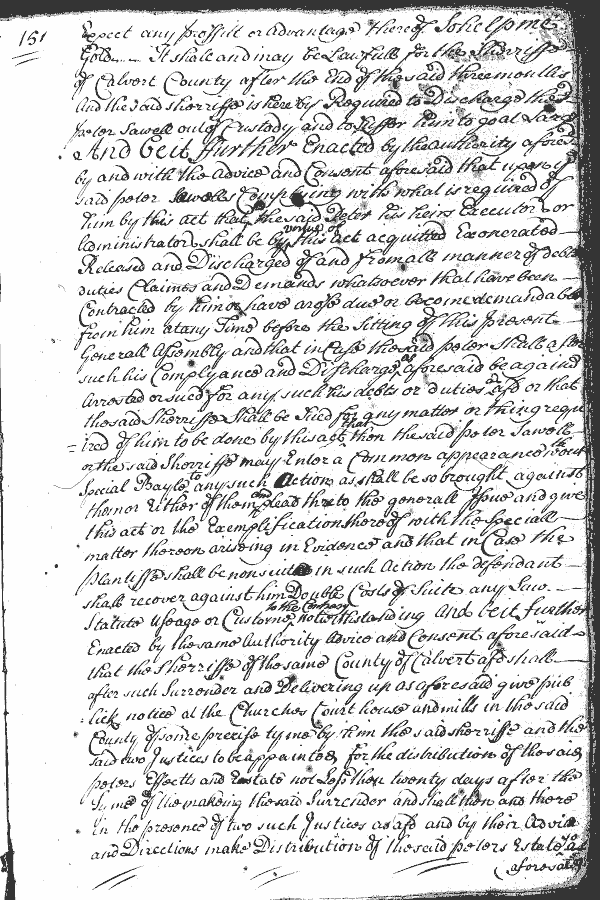 151
Expect any proffitt or advantage thereof So help me
God - - It shall and may be Lawfull for the Sherriffe
of Calvert County after the End of the said three months
And the said sherriffe is hereby Required to Discharge the sd
peter Sawell out of Custody and to suffer him to goe at Large
And beit ffurther Enacted by the authority afores
by and with the advice and Consent aforesaid that upon ye
said peter Sawells Complying with what is required of
him by this act that the said Peter his heirs Executor or
administrator shall be by virtue of this act acquitted Exonerated
Released and Discharged of and from all manner of debts
duties Claimes and Demands whatsoever that have been
Contracted by him or have arose due or become demandable
from him at any Time before the Sitting of this present
Generall Assembly and that in Case the said peter shall a
such his Complyance and Discharge as aforesaid be again
Arrested or sued for any such his debts or duties afsd or that
the said Sherriffe Shall be Sued for any matter or thing requi
=ired of him to be done by this act that then the said peter Sawell
or the said Sherriffe may Enter a Common appearance without
Special Bayle to any such Action as shall be so brought against
them or Either of them and plead thereto the generall Issue and give
this act or the Exemplification thereof with the Speciall
matter thereon ariseing in Evidence and that in Case the
plantiffe shall be nonsuited in such Action the defendant
shall recover against him Double Costs of Suite any Law
Statute Useage or Custome to the Contrary notwithstanding And beit further
Enacted by the same Authority Advice and Consent aforesaid
that the Sherriffe of the same County of Calvert afsd shall
after such Surrender and Delivering up as aforesaid give pub
=lick notice at the Churches Court house and mills in the said
County of some precise tyme by him the said sherriffe and the
said two Justices to be appointed for the distribution of the said
peters Effects and Estate not Less then twenty days after the
Tyme of the makeing the said Surrender and shall then and there
in the presence of two such Justices as afsd and by their Advice
and Directions make Distribution of the said peters Estate as
aforesaid